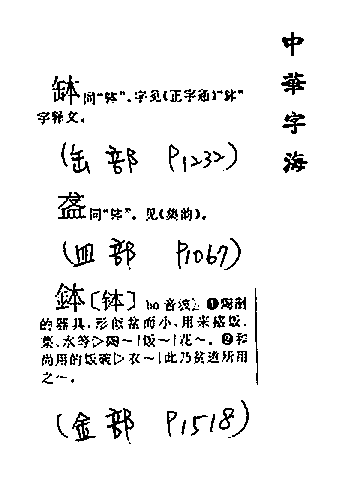 中華字海
缽同“钵”,字见《正字通》“钵”
字释文。
(缶部 P1232)
盋同“钵”。见《集韵》。
(皿部 P1067)
鉢〔钵〕bo音波 ❶陶制
的器具,形似盆而小,用来盛饭、
菜、水等▷陶~|饭~|花~。❷和
尚用的饭碗▷衣~|此乃贫道所用
之~。
(金部 P1518)